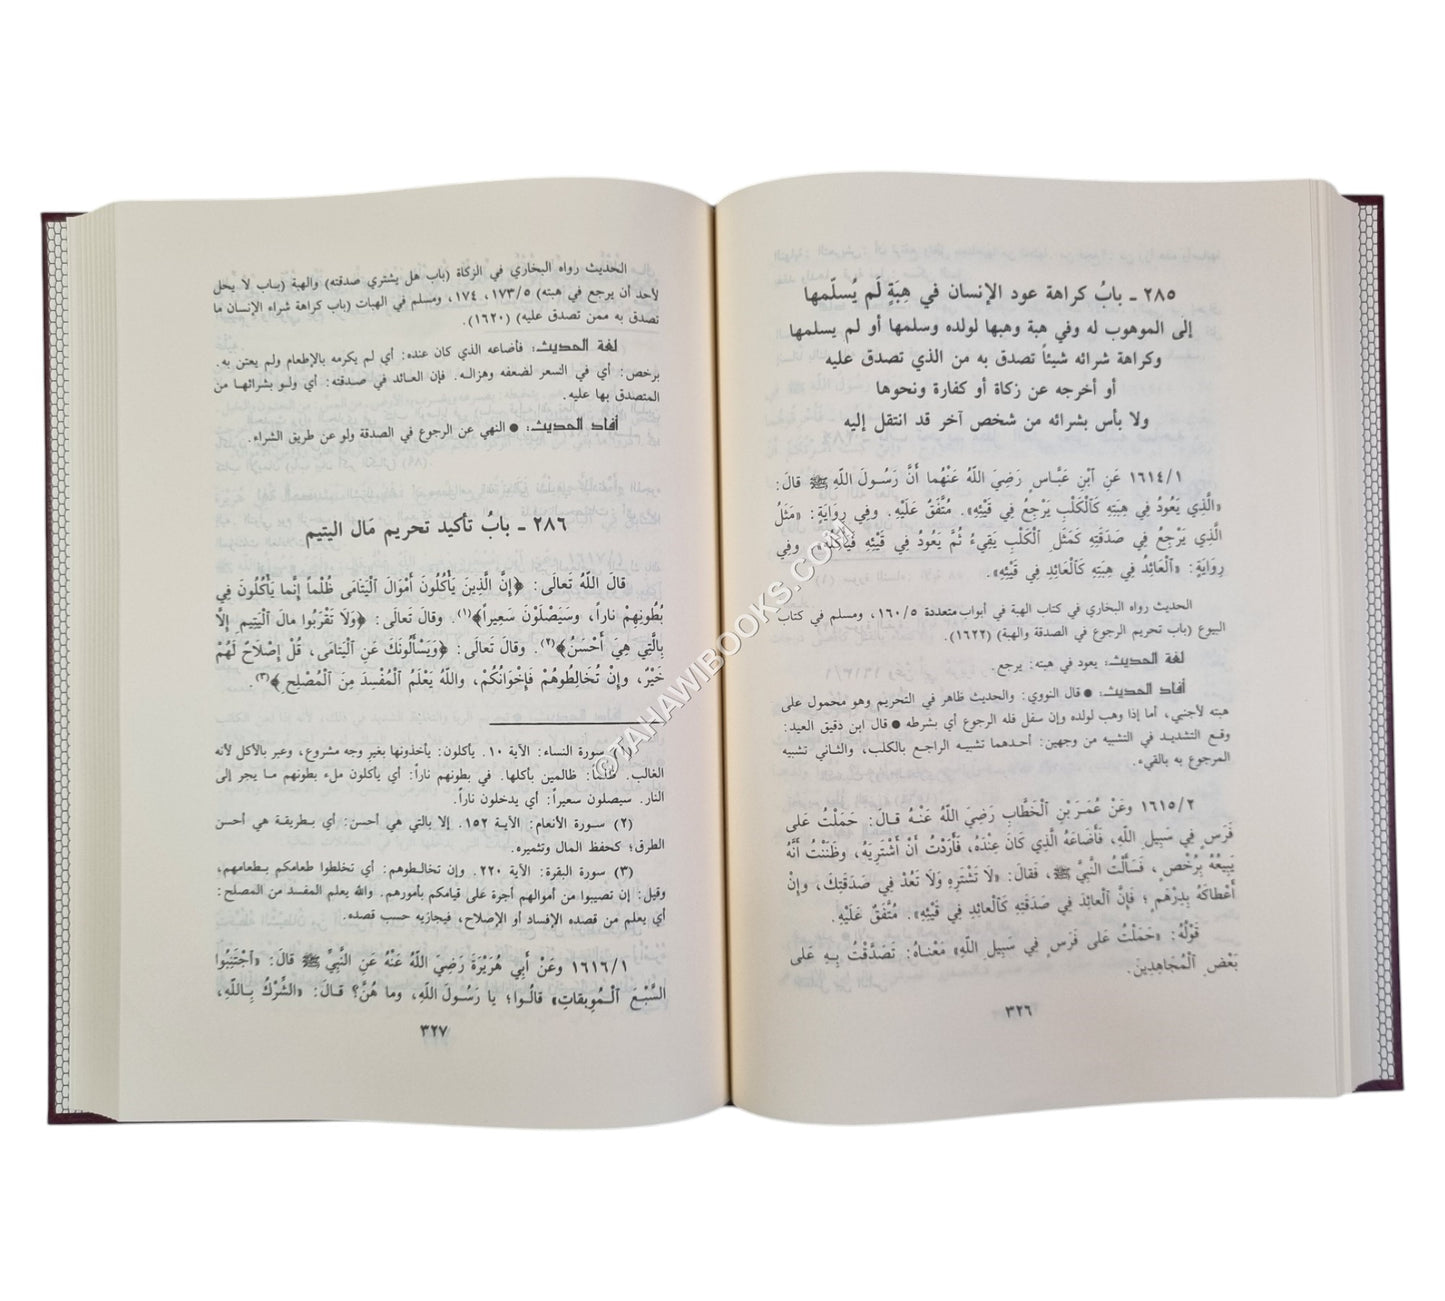 ٢٨٥ ـ بابُ كراهة عود الإنسان في هِبَةٍ لَم يُسلّمها
إلى الموهوب له وفي هبة وهبها لولده وسلمها أو لم يسلمها
وكراهة شرائه شيئاً تصدق به من الذي تصدق عليه
أو أخرجه عن زكاة أو كفارة ونحوها
ولا بأس بشرائه من شخص آخر قد انتقل إليه
١٦١٤/١ عَنِ ٱبْنِ عَبَّاسٍ رَضِيَ اللّهُ عَنْهُما أَنَّ رَسُولَ اللّهِ ﷺ قالَ:
«الَّذِي يَعُودُ فِي هِبَتِهِ كَالْكَلْبِ يَرْجِعُ فِي قَيْئِهِ». مُتَّفَقٌ عَلَيْهِ. وفِي رِوَايَةٍ: «مَثَلُ
الَّذِي يَرْجِعُ فِي صَدَقَتِهِ كَمَثَلِ الْكَلْبِ يَقِيءُ ثُمَّ يَعُودُ فِي قَيْئِهِ فَيَأْكُلُهُ» وفِي
رِوَايَةٍ: «الْعَائِدُ فِي هِبَتِهِ كَالْعَائِدِ فِي قَيْئِهِ».
الحديث رواه البخاري في كتاب الهبة في أبواب متعددة ١٦٠/٥، ومسلم في كتاب
البيوع (باب تحريم الرجوع في الصدقة والهبة) (١٦٢٢).
لغة الحديث: يعود في هبته: يرجع.
أفاد الحديث: ● قال النووي: والحديث ظاهر في التحريم وهو محمول على
هبته لأجنبي، أما إذا وهب لولده وإن سفل فله الرجوع أي بشرطه ● قال ابن دقيق العيد:
وقع التشديد في التشبيه من وجهين: أحدهما تشبيه الراجع بالكلب، والثاني تشبيه
المرجوع به بالقيء.
١٦١٥/٢ وعَنْ عُمَرَ بْنِ الْخَطَّابِ رَضِيَ اللّهُ عَنْهُ قالَ: حَمَلْتُ عَلى
فَرَسٍ فِي سَبِيلِ اللّهِ، فَأَضَاعَهُ الَّذِي كَانَ عِنْدَهُ، فَأَرَدْتُ أَنْ أَشْتَرِيَهُ، وظَنَنْتُ أَنَّهُ
يَبِيعُهُ بِرُخْصٍ، فَسَأَلْتُ النَّبِيَّ ﷺ، فَقالَ: «لَا تَشْتَرِهِ وَلَا تَعُدْ فِي صَدَقَتِكَ، وإِنْ
أَعْطَاكَهُ بِدِرْهَمٍ؛ فَإِنَّ الْعائِدَ فِي صَدَقَتِهِ كَالْعَائِدِ فِي قَيْئِهِ». مُتَّفَقٌ عَلَيْهِ.
قَوْلُهُ: «حَمَلْتُ عَلى فَرَسٍ فِي سَبِيلِ اللّهِ» مَعْناهُ: تَصَدَّقْتُ بِهِ عَلى
بَعْضِ الْمُجَاهِدِينَ.
٣٢٦
الحديث رواه البخاري في الزكاة (باب هل يشتري صدقته) والهبة (باب لا يحل
لأحد أن يرجع في هبته) ١٧٣/٥، ١٧٤، ومسلم في الهبات (باب كراهة شراء الإنسان ما
تصدق به ممن تصدق عليه) (١٦٢٠).
لغة الحديث: فأضاعه الذي كان عنده: أي لم يكرمه بالإطعام ولم يعتن به.
برخص: أي في السعر لضعفه وهزاله. فإن العائد في صدقته: أي ولو بشرائها من
المتصدق بها عليه.
أفاد الحديث: ● النهي عن الرجوع في الصدقة ولو عن طريق الشراء.
٢٨٦ ـ بابُ تأكيد تحريم مَال اليتيم
قالَ اللّهُ تَعالَى: ﴿إِنَّ الَّذِينَ يَأْكُلُونَ أَمْوَالَ الْيَتامَى ظُلْماً إِنَّما يَأْكُلُونَ فِي
بُطُونِهِمْ ناراً، وسَيَصْلَوْنَ سَعِيراً﴾(١). وقالَ تَعالَى: ﴿وَلَا تَقْرَبُوا مالَ الْيَتِيمِ إِلَّا
بِالَّتِي هِيَ أَحْسَنُ﴾(٢). وقالَ تَعالَى: ﴿وَيَسْأَلُونَكَ عَنِ الْيَتامَى، قُلْ إِصْلاحٌ لَهُمْ
خَيْرٌ، وإِنْ تُخَالِطُوهُمْ فَإِخْوَانُكُمْ، واللّهُ يَعْلَمُ الْمُفْسِدَ مِنَ الْمُصْلِحِ﴾(٣).
(١) سورة النساء: الآية ١٠. يأكلون: يأخذونها بغير وجه مشروع، وعبر بالأكل لأنه
الغالب. ظلماً: ظالمين بأكلها. في بطونهم ناراً: أي يأكلون ملء بطونهم ما يجر إلى
النار. سيصلون سعيراً: أي يدخلون ناراً.
(٢) سورة الأنعام: الآية ١٥٢. إلا بالتي هي أحسن: أي بطريقة هي أحسن
الطرق؛ كحفظ المال وتثميره.
(٣) سورة البقرة: الآية ٢٢٠. وإن تخالطوهم: أي تخلطوا طعامكم بطعامهم،
وقيل: إن تصيبوا من أموالهم أجرة على قيامكم بأمورهم. والله يعلم المفسد من المصلح:
أي يعلم من قصده الإفساد أو الإصلاح، فيجازيه حسب قصده.
١٦١٦/١ وعَنْ أَبِي هُرَيْرَةَ رَضِيَ اللّهُ عَنْهُ عَنِ النَّبِيِّ ﷺ قالَ: «اجْتَنِبُوا
السَّبْعَ الْمُوبِقاتِ» قالُوا؛ يا رَسُولَ اللّهِ، وما هُنَّ؟ قالَ: «الشِّرْكُ بِاللّهِ،
٣٢٧
©TAHAWIBOOKS.COM